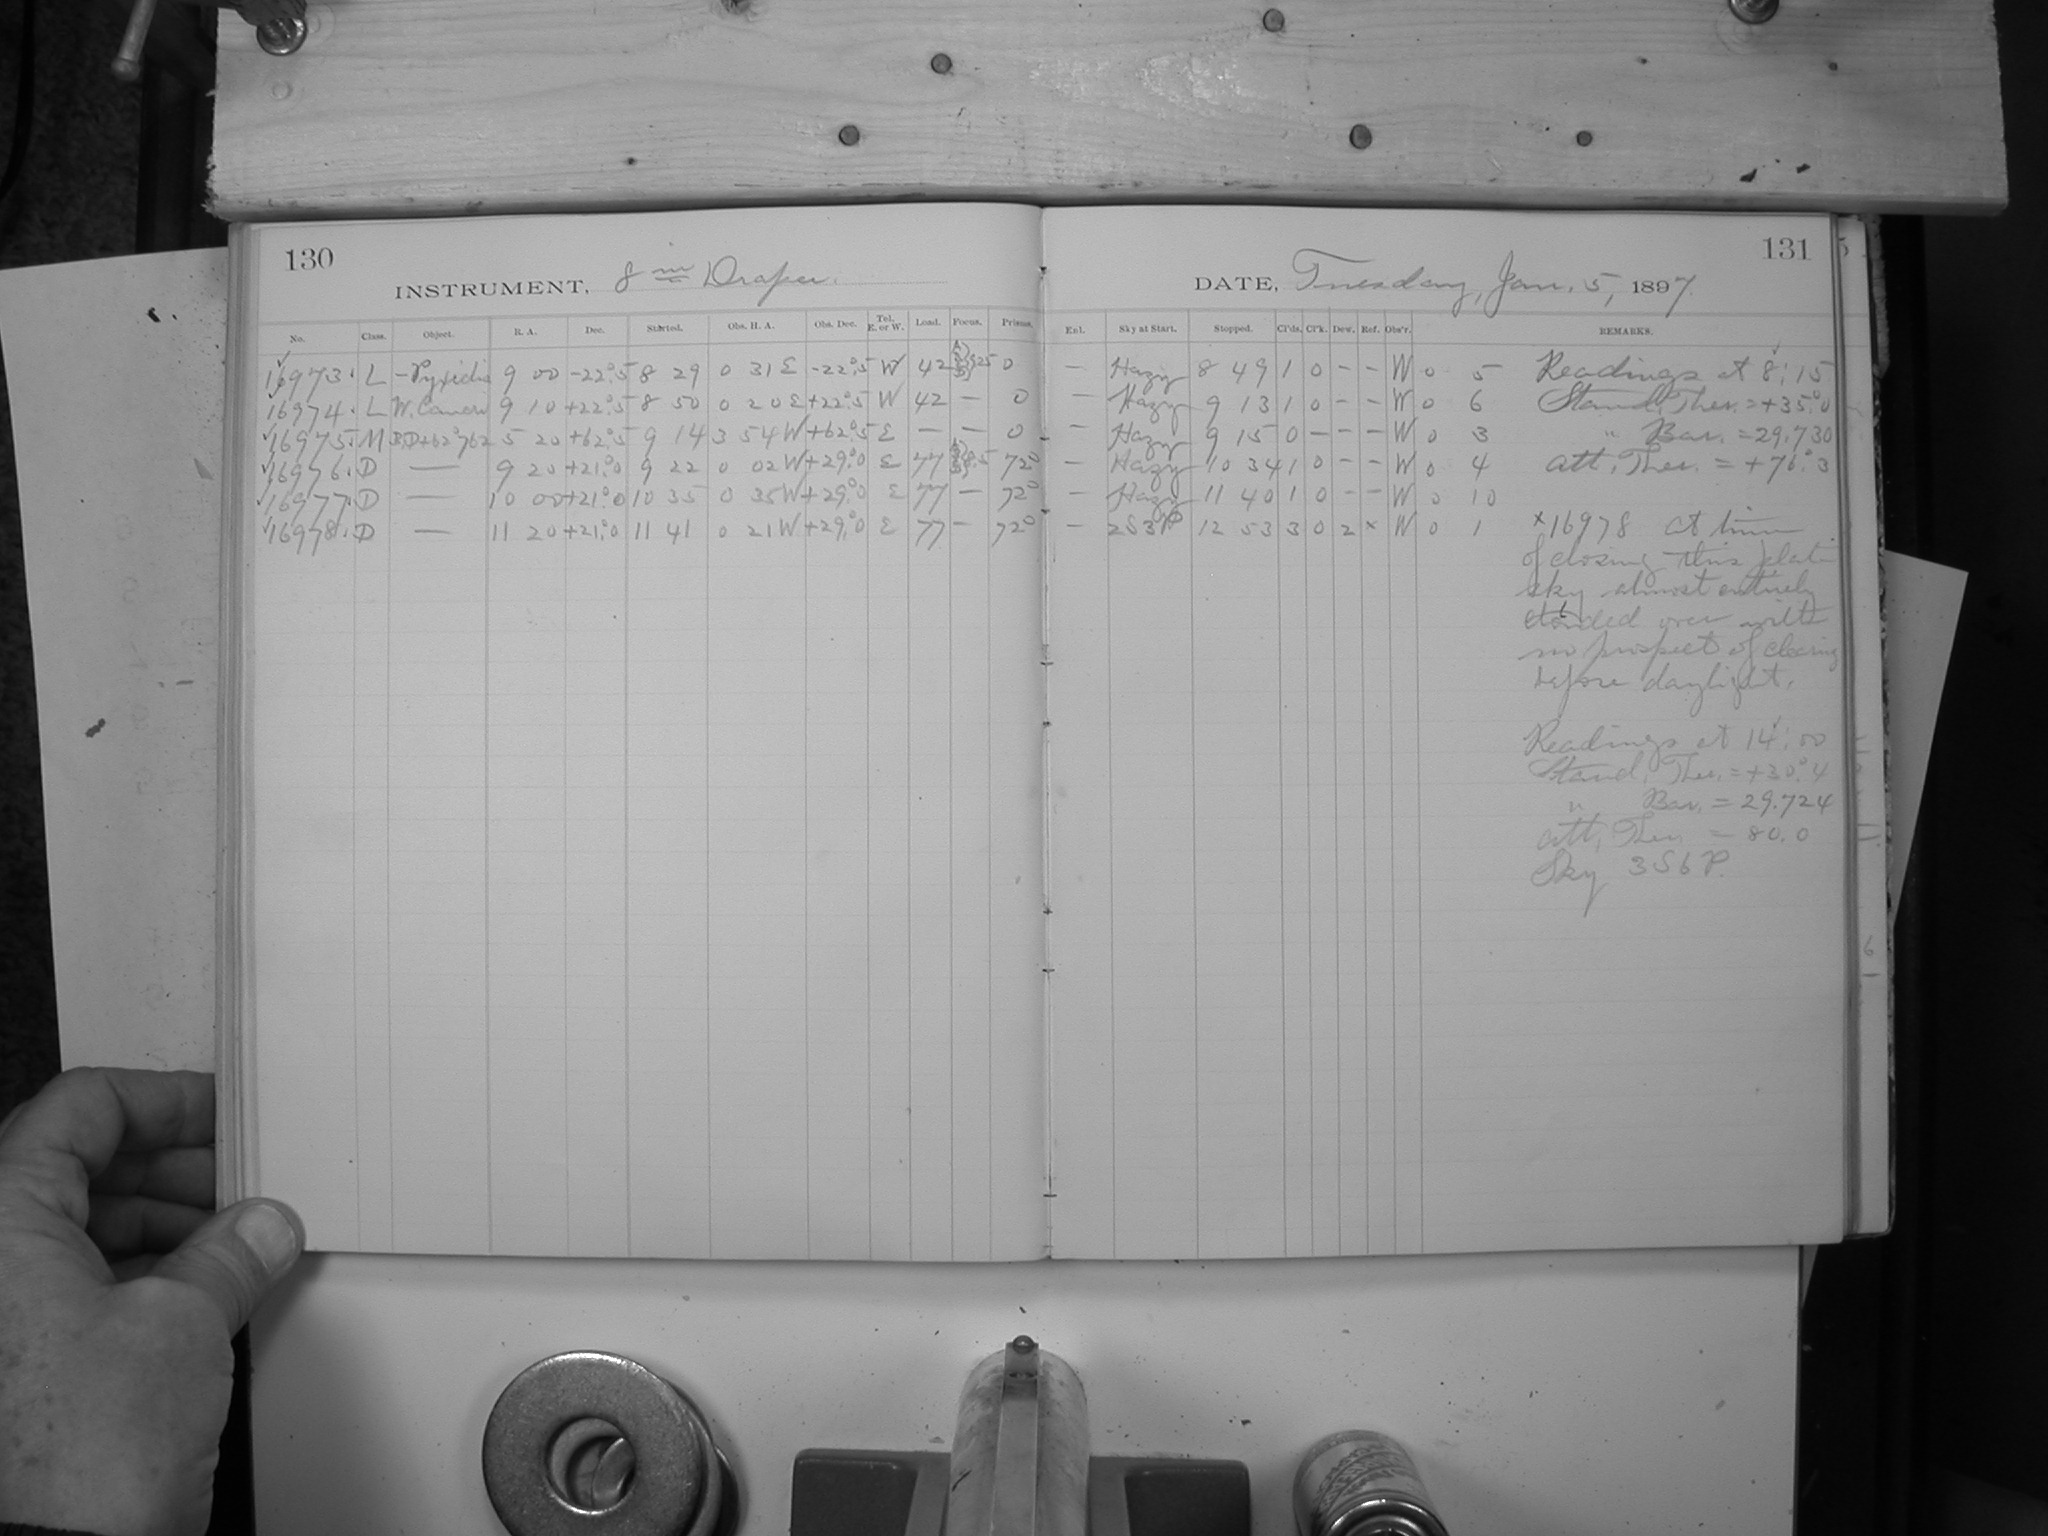 130
INSTRUMENT, 8 in Draper.
No. Class. Object. R. A. Dec. Started. Obs. H. A. Obs. Dec. Tel. E. or W. Load. Focus. Prisms.
16973. L – Pyxidis 9 00 -22°.5 8 29 0 31 E -22°.5 W 42 0
16974. L W. Cancri 9 10 +22°.5 8 50 0 20 E +22°.5 W 42 — 0
16975. M B.D+62°762 5 20 +62°.5 9 14 3 54 W +62°.5 E — — 0
16976. D — 9 20 +21°.0 9 22 0 02 W +29°.0 E 77 72°
16977. D — 10 00 +21°.0 10 35 0 35 W +29°.0 E 77 — 72°
16978. D — 11 20 +21°.0 11 41 0 21 W +29°.0 E 77 — 72°
131
DATE, Tuesday, Jan. 5, 1897.
Enl. Sky at Start. Stopped. Cl'ds. Cl'k. Dew. Ref. Obs'r. REMARKS.
— Hazy 8 49 1 0 – – W 0 5 Readings at 8:15
— Hazy 9 13 1 0 – – W 0 6 Stand. Ther. = +35°.0
— Hazy 9 15 0 – – – W 0 3 " Bar. = 29.730
— Hazy 10 34 1 0 – – W 0 4 Att. Ther. = +76°.3
— Hazy 11 40 1 0 – – W 0 10
— 2S3P 12 53 3 0 2 × W 0 1 ×16978 at time
of closing this plate
sky almost entirely
clouded over with
no prospect of clearing
before daylight.
Readings at 14:00
Stand. Ther. = +30°.4
" Bar. = 29.724
Att. Ther. = 80.0
Sky 3S6P.